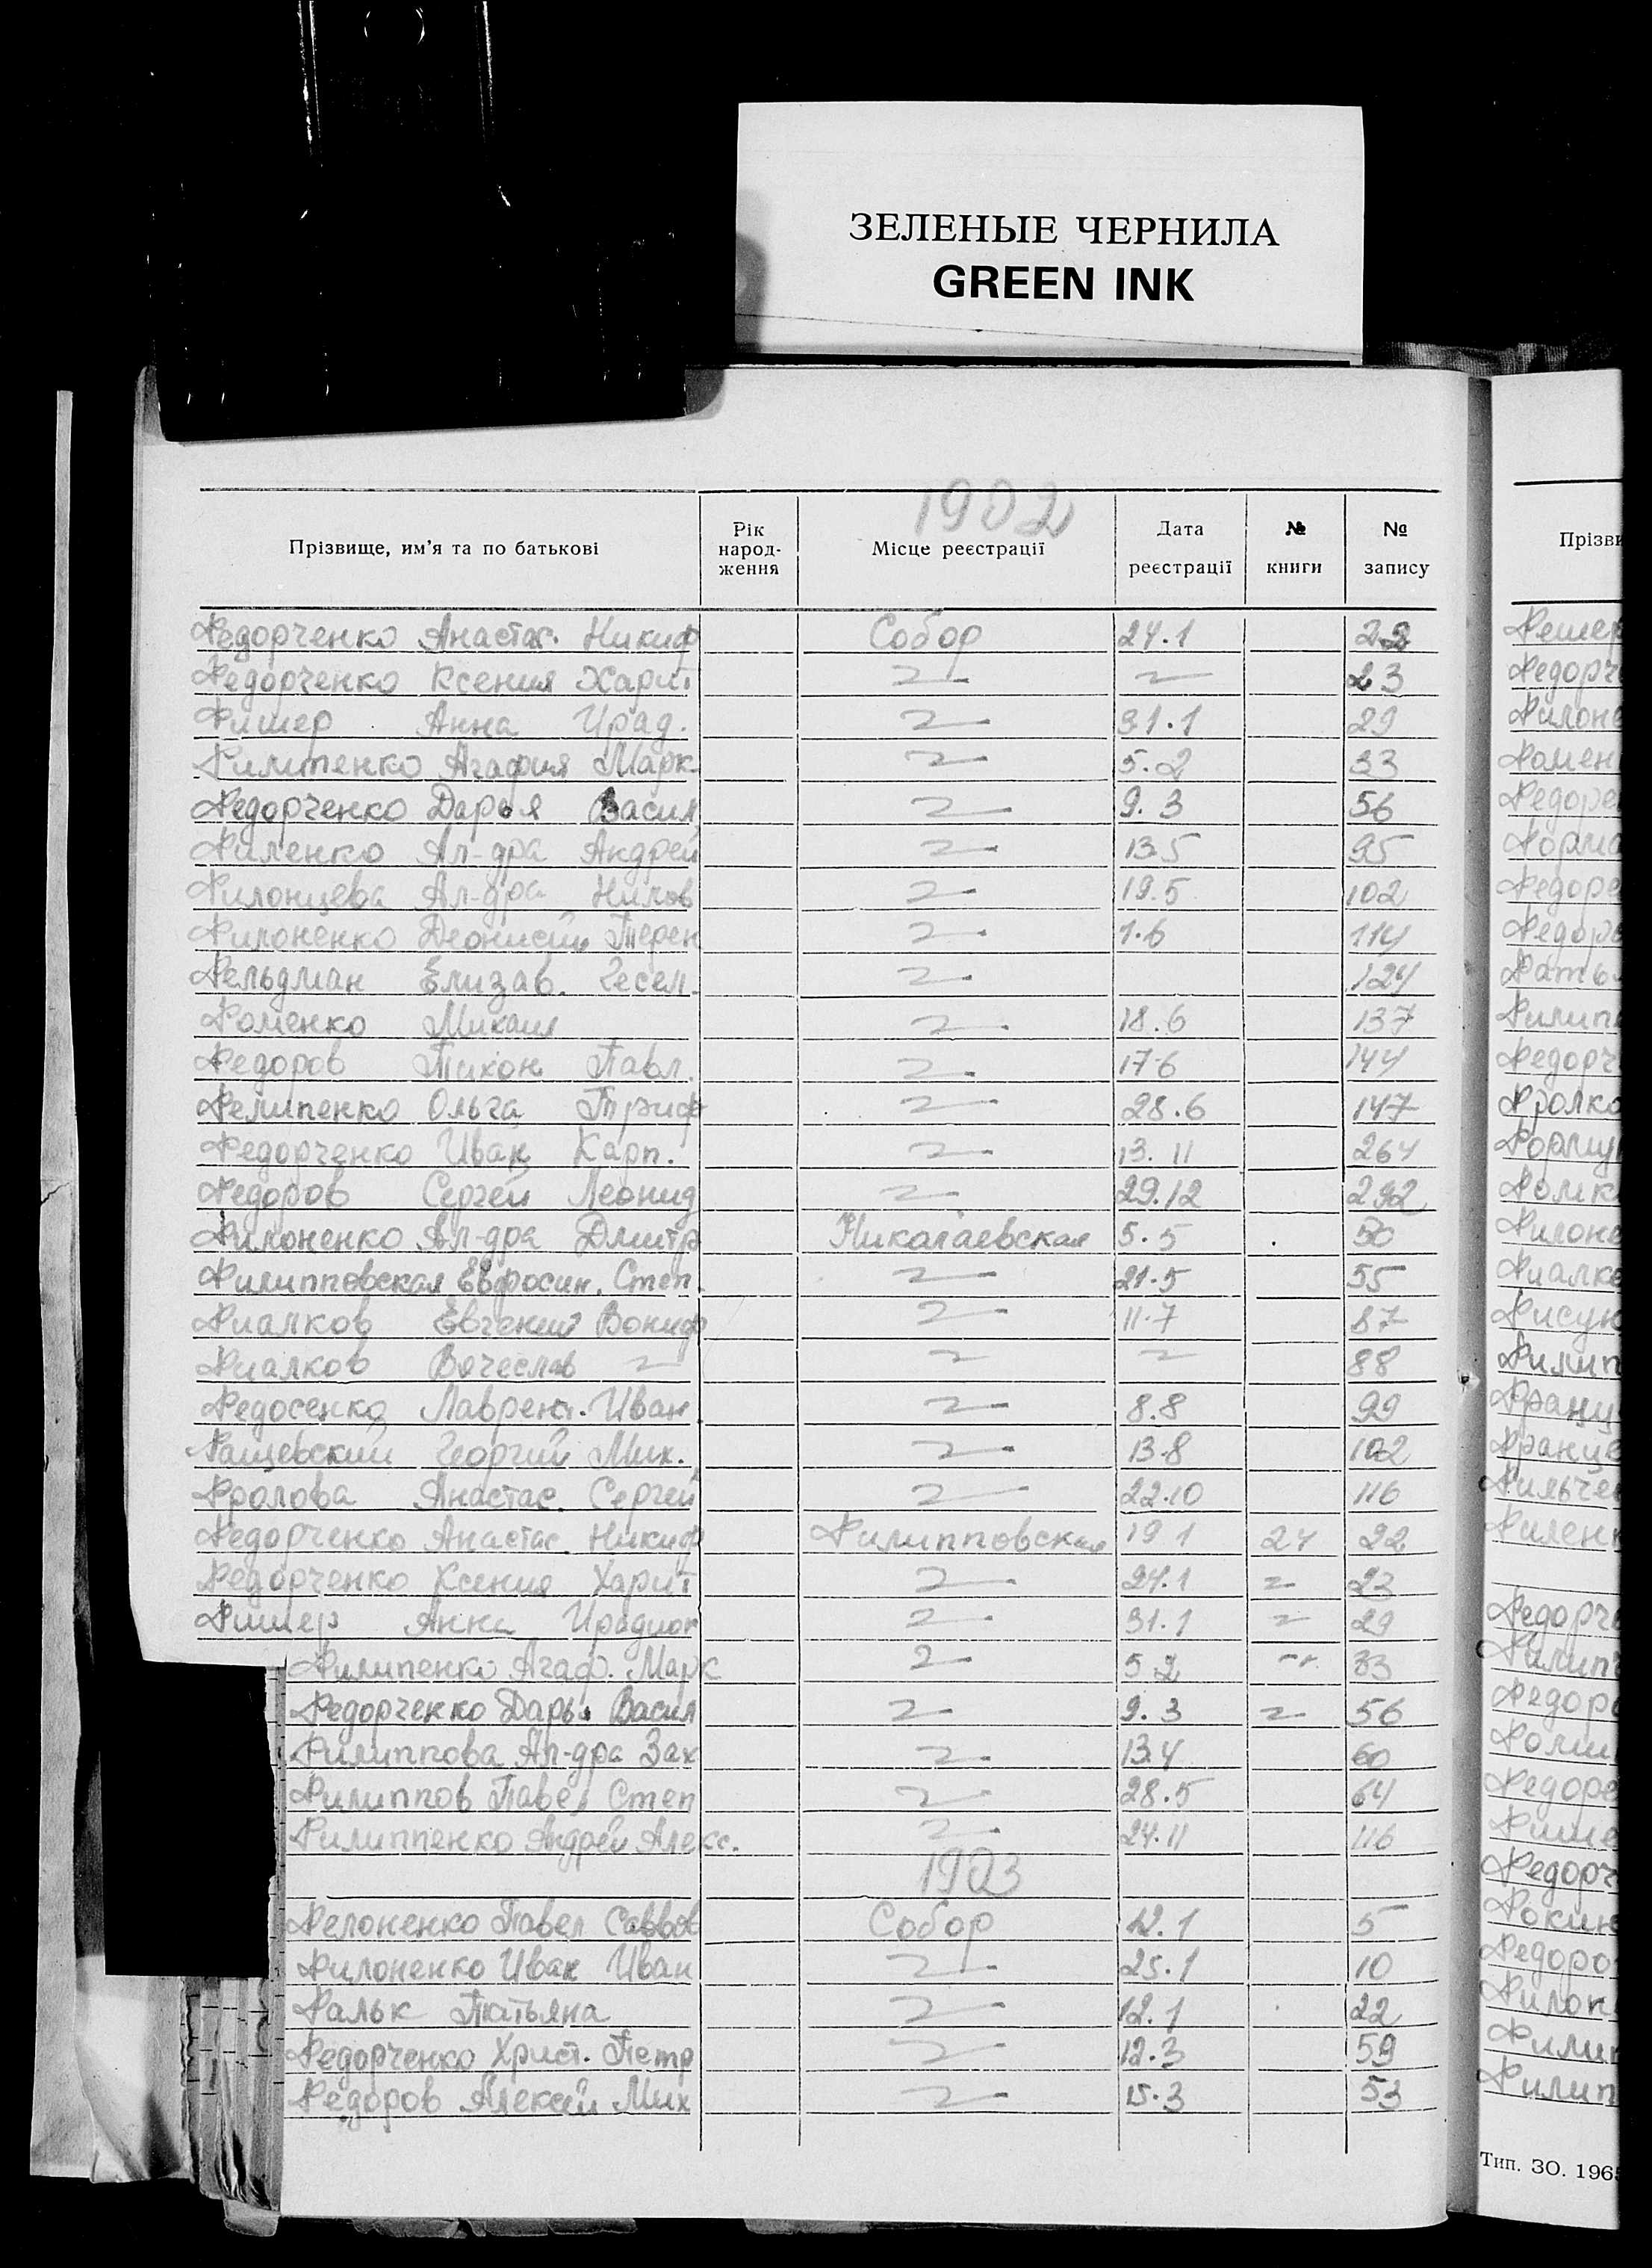 ЗЕЛЕНЫЕ ЧЕРНИЛА
GREEN INK
1902
Прізвище, им'я та по батькові Рік народ-ження Місце реєстрації Дата реєстрації № книги № запису
Федорченко Анастас. Никиф Собор 24.1 22
Федорченко Ксения Харит 〃 〃 23
Фишер Анна Ирад. 〃 31.1 29
Филипенко Агафия Марк 〃 5.2 33
Федорченко Дарья Васил 〃 9.3 56
Филенко Ал-дра Андрей 〃 13.5 95
Филонцева Ал-дра Нилов 〃 19.5 102
Филоненко Деонисий Терен 〃 1.6 114
Фельдман Елизав. Гесел. 〃 124
Фоменко Михаил 〃 18.6 137
Федоров Тихон Павл. 〃 17.6 144
Фелипенко Ольга Триф 〃 28.6 147
Федорченко Иван Карп. 〃 13.11 264
Федоров Сергей Леонид 〃 29.12 292
Филоненко Ал-дра Дмитр Николаевская 5.5 50
Филипповская Евфросин. Степ. 〃 21.5 55
Фиалков Евгений Вониф 〃 11.7 87
Фиалков Вячеслав 〃 〃 〃 88
Федосенко Лаврент. Иван 〃 8.8 99
Фащевский Георгий Мих. 〃 13.8 102
Фролова Анастас. Сергей 〃 22.10 116
Федорченко Анастас Никиф Филипповская 19.1 24 22
Федорченко Ксения Харит 〃 24.1 〃 23
Фишер Анна Ирадион 〃 31.1 〃 29
Филипенко Агаф. Марк 〃 5.2 〃 33
Федорченко Дарья Васил 〃 9.3 〃 56
Филиппова Ал-дра Зах 〃 13.4 60
Филиппов Павел Степ 〃 28.5 64
Филиппенко Андрей Алекс. 〃 24.11 116
1903
Фелоненко Павел Саввов Собор 12.1 5
Филоненко Иван Иван 〃 25.1 10
Фальк Татьяна 〃 12.1 22
Федорченко Христ. Петр 〃 12.3 59
Федоров Алексей Мих 〃 15.3 53
Прізви
Тип. ЗО. 196